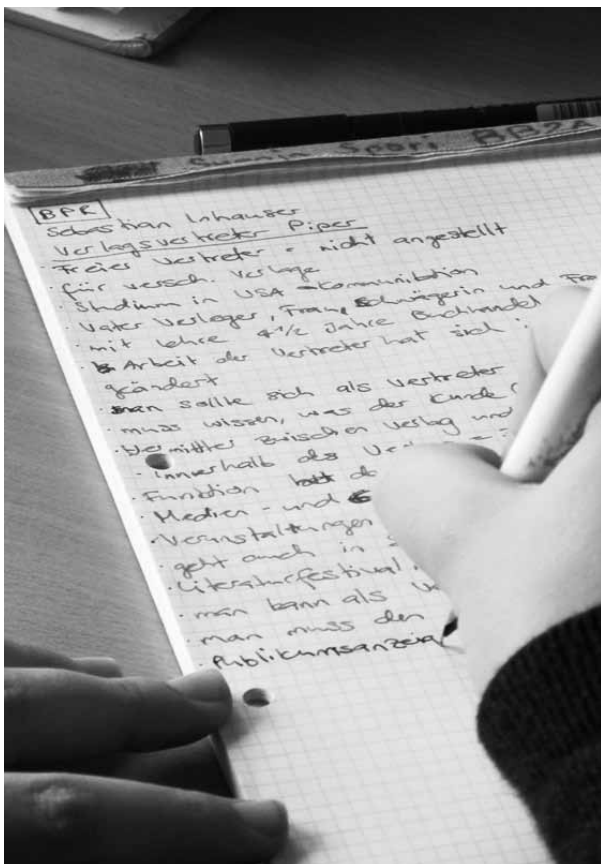 Spori BB2A
BPR
Sebastian Inhauser
Verlagsvertreter Piper
· Freier Vertreter - nicht angestellt
· für versch. Verlage
· Studium in USA Kommunikation
· Vater Verleger, Frau, Schwägerin und
· mit Lehre 4 1/2 Jahre Buchhandel
· Arbeit der Vertreter hat sich
geändert
· man sollte sich als Vertreter
· muss wissen, was der Kunde
· Vermittler zwischen Verlag und
· innerhalb des
· Funktion
· Medien - und
· Veranstaltungen
· geht auch in
· Literaturfestival
· man kann als
· man muss den
· Publikumsanzeig